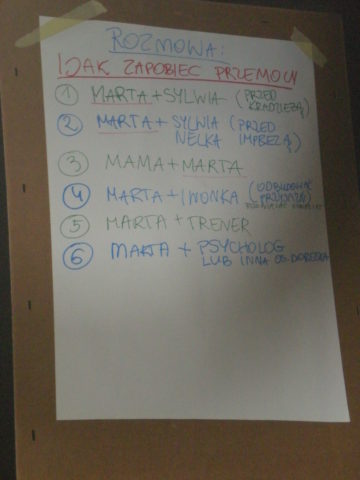 ROZMOWA:
JAK ZAPOBIEC PRZEMOCY
1 MARTA + SYLWIA (PRZED
KRADZIEŻĄ)
2 MARTA + SYLWIA (PRZED
NELKA IMPREZĄ)
3 MAMA + MARTA
4 MARTA + IWONKA (ODBUDOWAĆ
PRZYJAŹŃ)
5 MARTA + TRENER
6 MARTA + PSYCHOLOG
LUB INNA OS. DOROSŁA